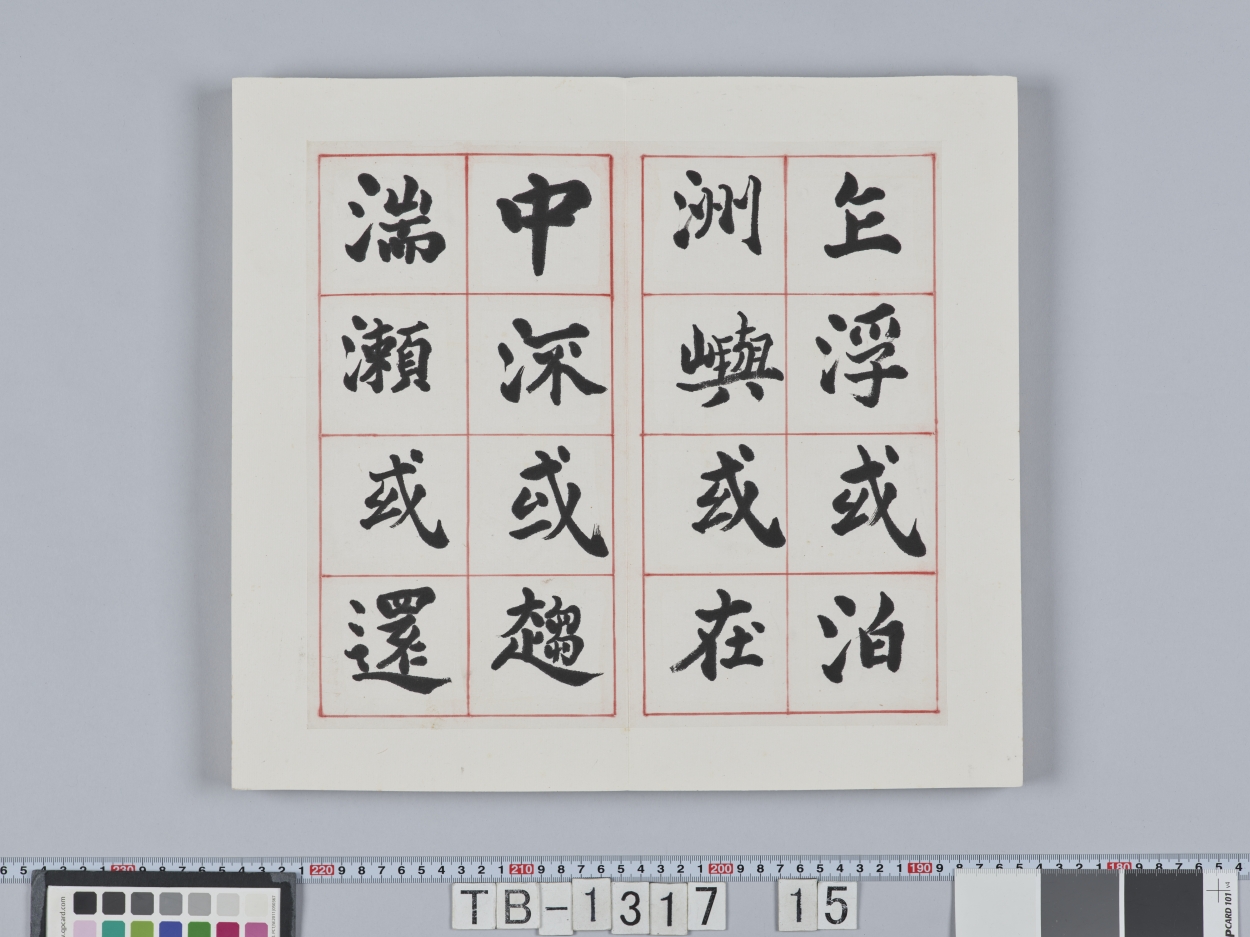 乍浮或泊
洲嶼或在
中深或趨
湍瀨或還
230 220 210 200 190 180
TB-1317 15